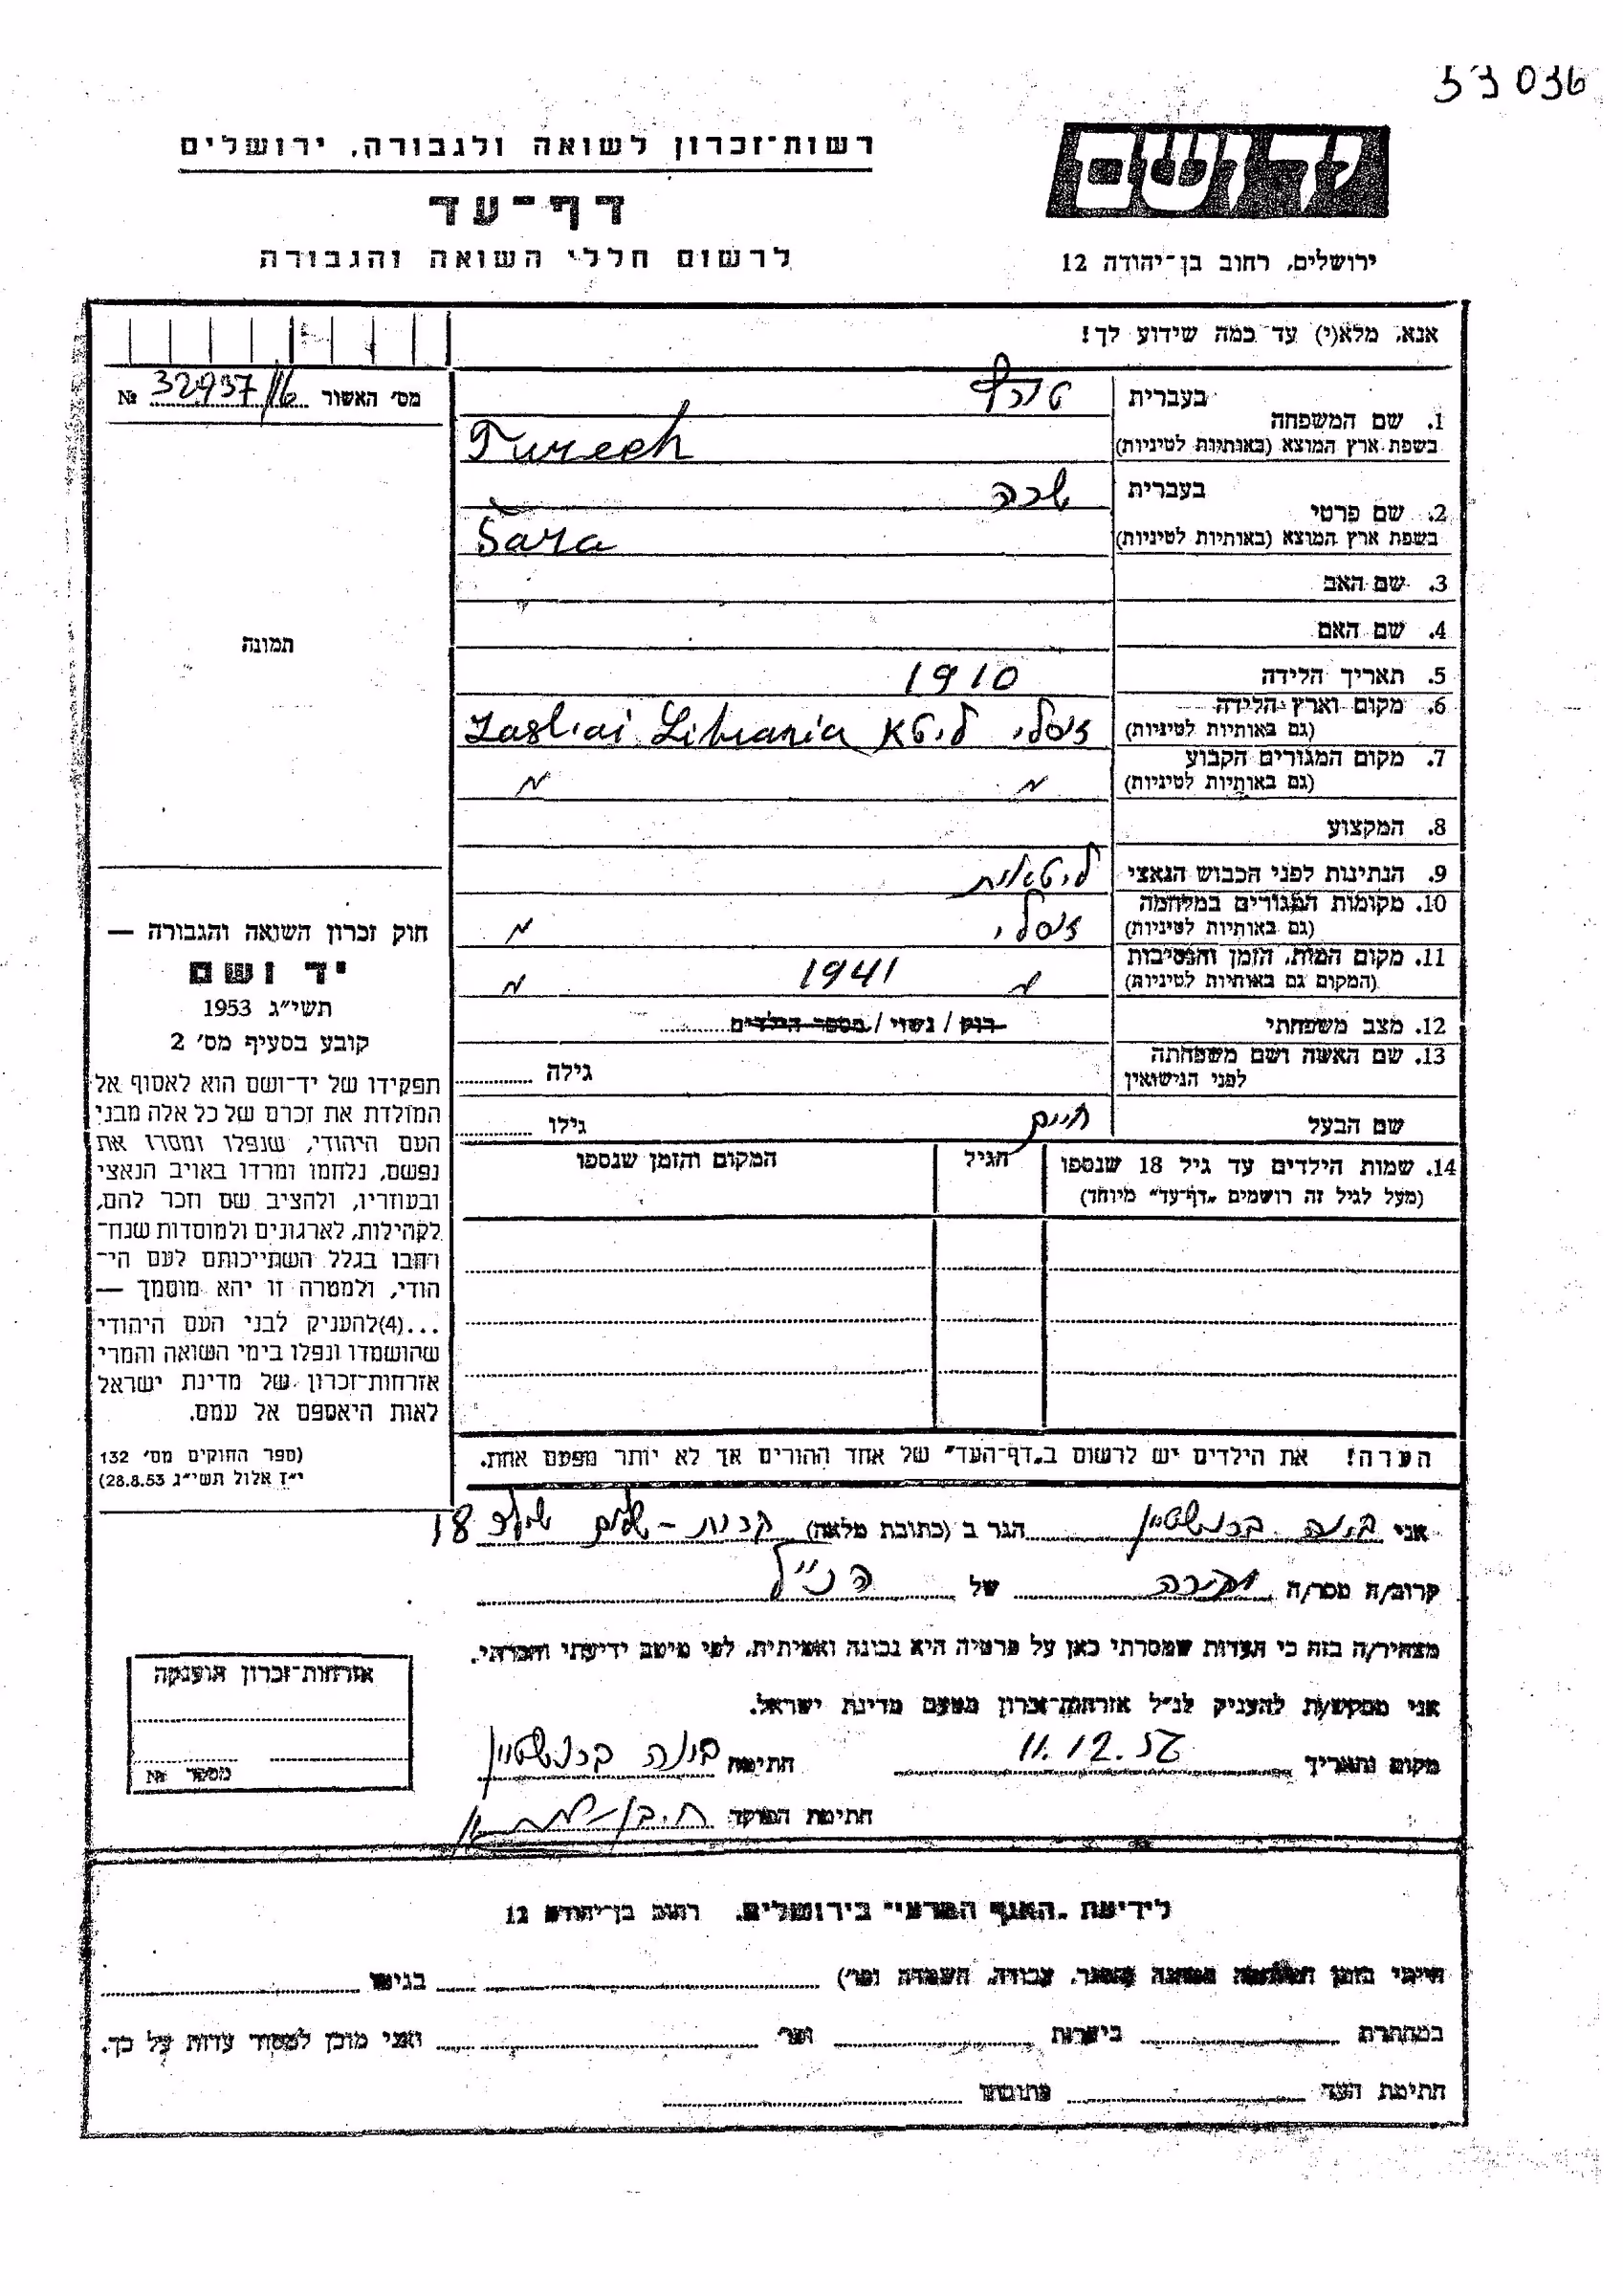 53036
רשות־זכרון לשואה ולגבורה, ירושלים
יד ושם
דף־עד
לרשום חללי השואה והגבורה
ירושלים, רחוב בן־יהודה 12
אנא, מלא(י) עד כמה שידוע לך!
מס׳ האשור № 32937/16
1. שם המשפחה
בעברית טורף
בשפת ארץ המוצא (באותיות לטיניות) Tureeh
2. שם פרטי
בעברית שרה
בשפת ארץ המוצא (באותיות לטיניות) Sara
3. שם האב
4. שם האם
תמונה
5. תאריך הלידה 1910
6. מקום וארץ הלידה
(גם באותיות לטיניות) ז'סלי ליטא Zasliai Lituania
7. מקום המגורים הקבוע
(גם באותיות לטיניות) " "
8. המקצוע
9. הנתינות לפני הכבוש הנאצי ליטאית
10. מקומות המגורים במלחמה
(גם באותיות לטיניות) ז'סלי "
11. מקום המות, הזמן והנסיבות
(המקום גם באותיות לטיניות) " 1941 "
12. מצב משפחתי רוק / נשוי / מספר הילדים
13. שם האשה ושם משפחתה
לפני הנישואין גילה
שם הבעל חיים גילו
14. שמות הילדים עד גיל 18 שנספו הגיל המקום והזמן שנספו
(מעל לגיל זה רושמים „דף־עד" מיוחד)
הערה! את הילדים יש לרשום ב„דף־העד" של אחד ההורים אך לא יותר מפעם אחת.
חוק זכרון השואה והגבורה —
יד ושם
תשי״ג 1953
קובע בסעיף מס׳ 2
תפקידו של יד־ושם הוא לאסוף אל
המולדת את זכרם של כל אלה מבני
העם היהודי, שנפלו ומסרו את
נפשם, נלחמו ומרדו באויב הנאצי
ובעוזריו, ולהציב שם וזכר להם,
לקהילות, לארגונים ולמוסדות שנח־
רבו בגלל השתייכותם לעם הי־
הודי, ולמטרה זו יהא מוסמך —
...(4)להעניק לבני העם היהודי
שהושמדו ונפלו בימי השואה והמרי
אזרחות־זכרון של מדינת ישראל
לאות היאספם אל עמם.
(ספר החוקים מס׳ 132
י״ז אלול תשי״ג 28.8.53)
אני בונה ברנשטיין הגר ב (כתובת מלאה) קרית-שלום 18
קרוב/ה מכר/ה של הנ״ל
מצהיר/ה בזה כי העדות שמסרתי כאן על פרטיה היא נכונה ואמיתית, לפי מיטב ידיעתי והכרתי.
אני מבקש/ת להעניק לנ״ל אזרחות־זכרון מטעם מדינת ישראל.
מקום ותאריך 11.12.56 חתימה בונה ברנשטיין
חתימת הפוקד
אזרחות־זכרון הוענקה
מספר №
לידיעת „האגף המדעי" בירושלים, רחוב בן־יהודה 12
הייתי בזמן המלחמה עבודה, השמדה וכו׳) בגיטו
במחתרת ביערות וכו׳ ואני מוכן למסור עדות על כך.
חתימת העד כתובתו